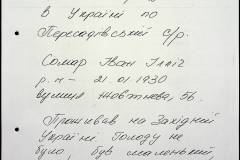 в Україні по
Пересадівській с/р.
Сомар Іван Ілліч
р.н – 21.01.1930
вулиця Жовтнева, 56.
Проживав на Західній
Україні. Голоду не
було, був маленький,